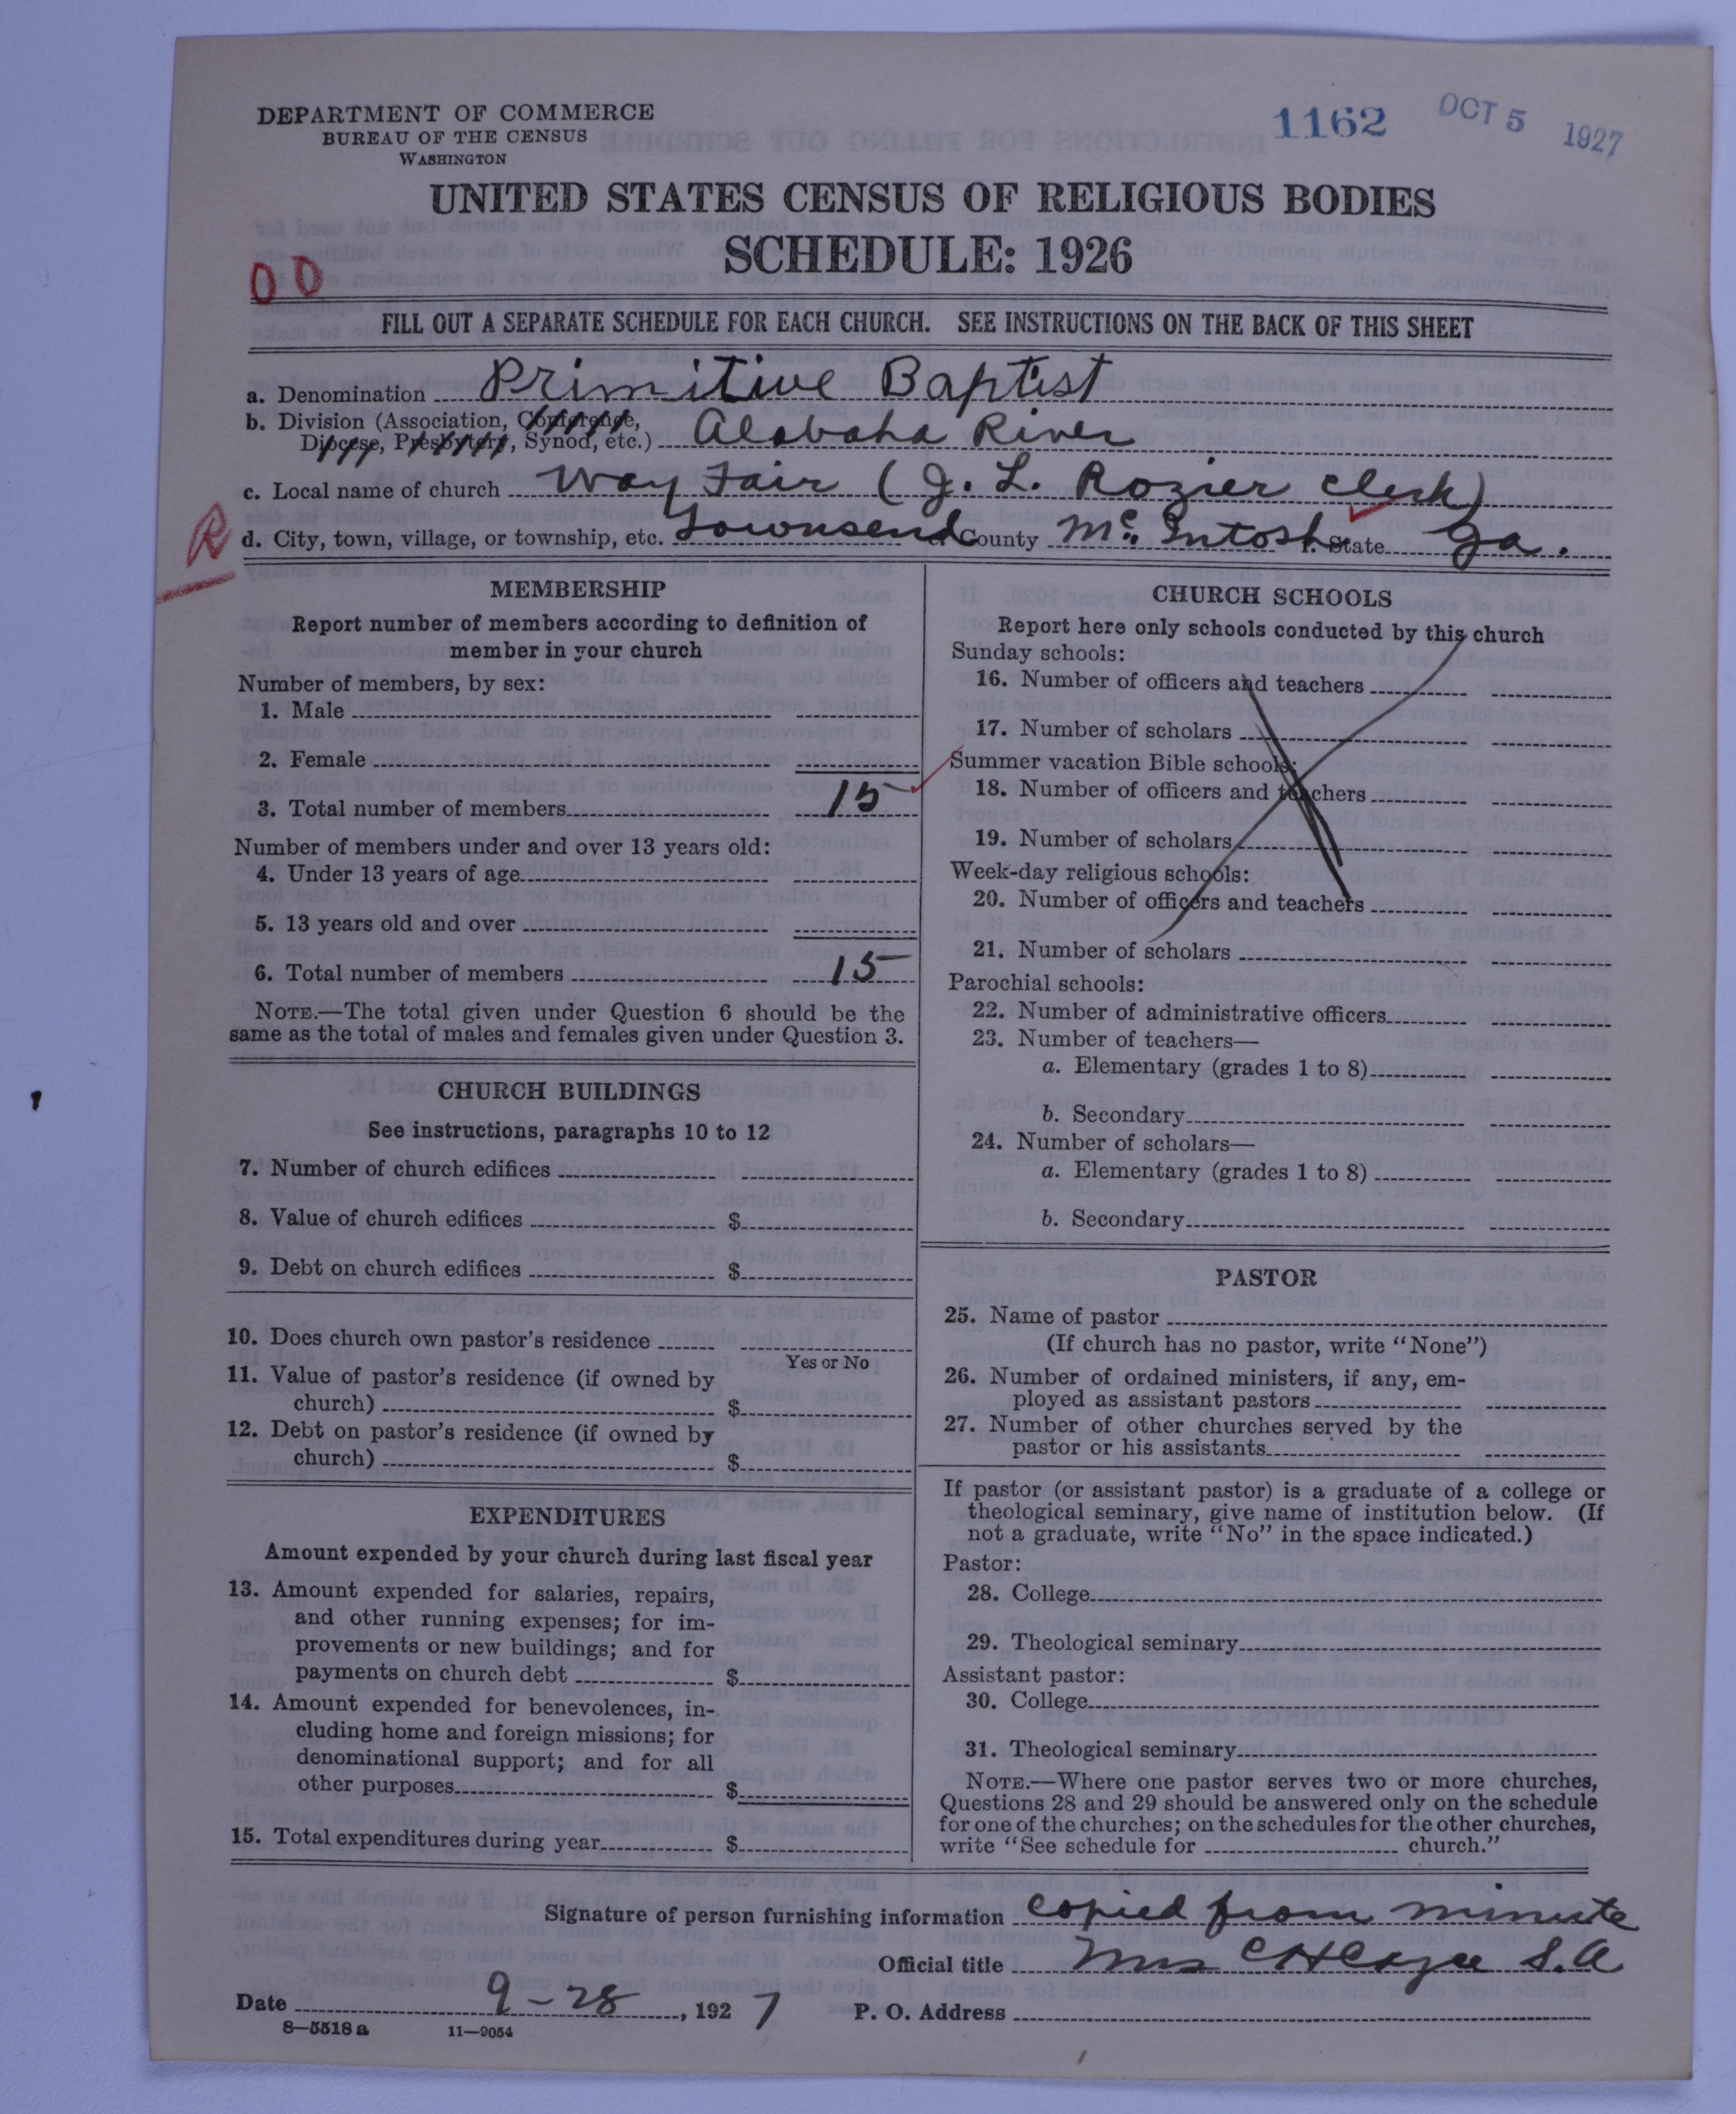 DEPARTMENT OF COMMERCE
BUREAU OF THE CENSUS
WASHINGTON
1162 OCT 5 1927
UNITED STATES CENSUS OF RELIGIOUS BODIES
SCHEDULE: 1926
00
FILL OUT A SEPARATE SCHEDULE FOR EACH CHURCH. SEE INSTRUCTIONS ON THE BACK OF THIS SHEET
a. Denomination Primitive Baptist
b. Division (Association, Conference,
Diocese, Presbytery, Synod, etc.) Alabaha River
c. Local name of church Way Fair (J. L. Rozier clerk)
R
d. City, town, village, or township, etc. Townsend e. County McIntosh f. State Ga.
MEMBERSHIP
Report number of members according to definition of
member in your church
Number of members, by sex:
1. Male
2. Female
3. Total number of members 15
Number of members under and over 13 years old:
4. Under 13 years of age
5. 13 years old and over
6. Total number of members 15
NOTE.—The total given under Question 6 should be the
same as the total of males and females given under Question 3.
CHURCH BUILDINGS
See instructions, paragraphs 10 to 12
7. Number of church edifices
8. Value of church edifices $
9. Debt on church edifices $
10. Does church own pastor's residence
Yes or No
11. Value of pastor's residence (if owned by
church) $
12. Debt on pastor's residence (if owned by
church) $
EXPENDITURES
Amount expended by your church during last fiscal year
13. Amount expended for salaries, repairs,
and other running expenses; for im-
provements or new buildings; and for
payments on church debt $
14. Amount expended for benevolences, in-
cluding home and foreign missions; for
denominational support; and for all
other purposes $
15. Total expenditures during year $
CHURCH SCHOOLS
Report here only schools conducted by this church
Sunday schools:
16. Number of officers and teachers
17. Number of scholars
Summer vacation Bible schools:
18. Number of officers and teachers
19. Number of scholars
Week-day religious schools:
20. Number of officers and teachers
21. Number of scholars
Parochial schools:
22. Number of administrative officers
23. Number of teachers—
a. Elementary (grades 1 to 8)
b. Secondary
24. Number of scholars—
a. Elementary (grades 1 to 8)
b. Secondary
PASTOR
25. Name of pastor
(If church has no pastor, write "None")
26. Number of ordained ministers, if any, em-
ployed as assistant pastors
27. Number of other churches served by the
pastor or his assistants
If pastor (or assistant pastor) is a graduate of a college or
theological seminary, give name of institution below. (If
not a graduate, write "No" in the space indicated.)
Pastor:
28. College
29. Theological seminary
Assistant pastor:
30. College
31. Theological seminary
NOTE.—Where one pastor serves two or more churches,
Questions 28 and 29 should be answered only on the schedule
for one of the churches; on the schedules for the other churches,
write "See schedule for church."
Signature of person furnishing information copied from minute
Official title Mrs S.A
Date 9-28, 1927 P. O. Address
8—5518a 11—9054